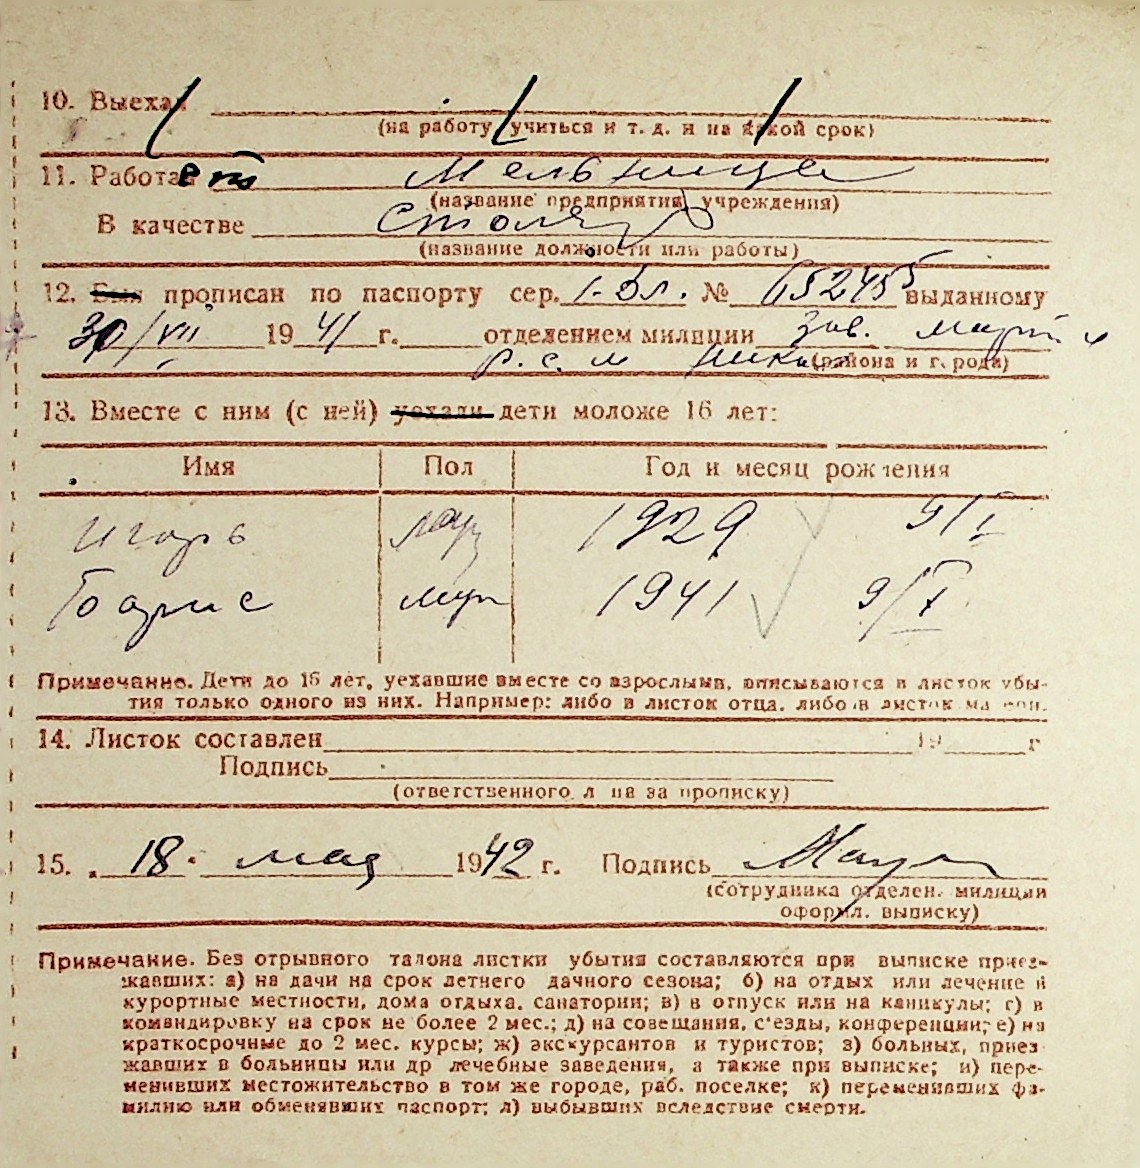 10. Выехал
(на работу, учиться и т. д. и на какой срок)
11. Работает Мельница
(название предприятия, учреждения)
В качестве Столяр
(название должности или работы)
12. Был прописан по паспорту сер. № 652455 выданному
30/VII 1941 г. отделением милиции зав.
р. с. м (района и города)
13. Вместе с ним (с ней) уехали дети моложе 16 лет:
Имя Пол Год и месяц рождения
Игорь муж 1929 9/I
Борис муж 1941 9/X
Примечание. Дети до 16 лет, уехавшие вместе со взрослыми, вписываются в листок убы-
тия только одного из них. Например: либо в листок отца, либо в листок матери.
14. Листок составлен 19 г
Подпись
(ответственного лица за прописку)
15. 18 мая 1942 г. Подпись
(сотрудника отделен. милиции
оформл. выписку)
Примечание. Без отрывного талона листки убытия составляются при выписке приез-
жавших: а) на дачи на срок летнего дачного сезона; б) на отдых или лечение в
курортные местности, дома отдыха, санатории; в) в отпуск или на каникулы; г) в
командировку на срок не более 2 мес.; д) на совещания, с'езды, конференции; е) на
краткосрочные до 2 мес. курсы; ж) экскурсантов и туристов; з) больных, приез
жавших в больницы или др лечебные заведения, а также при выписке; и) пере-
менивших местожительство в том же городе, раб. поселке; к) переменивших фа-
милию или обменявших паспорт; л) выбывших вследствие смерти.